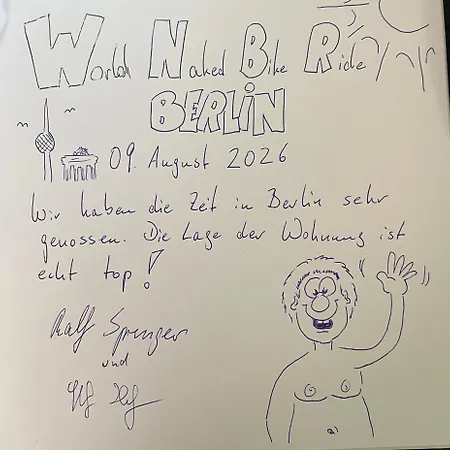 World Naked Bike Ride
BERLIN
09. August 2026
Wir haben die Zeit in Berlin sehr
genossen. Die Lage der Wohnung ist
echt top!
Ralf Sprenger
und